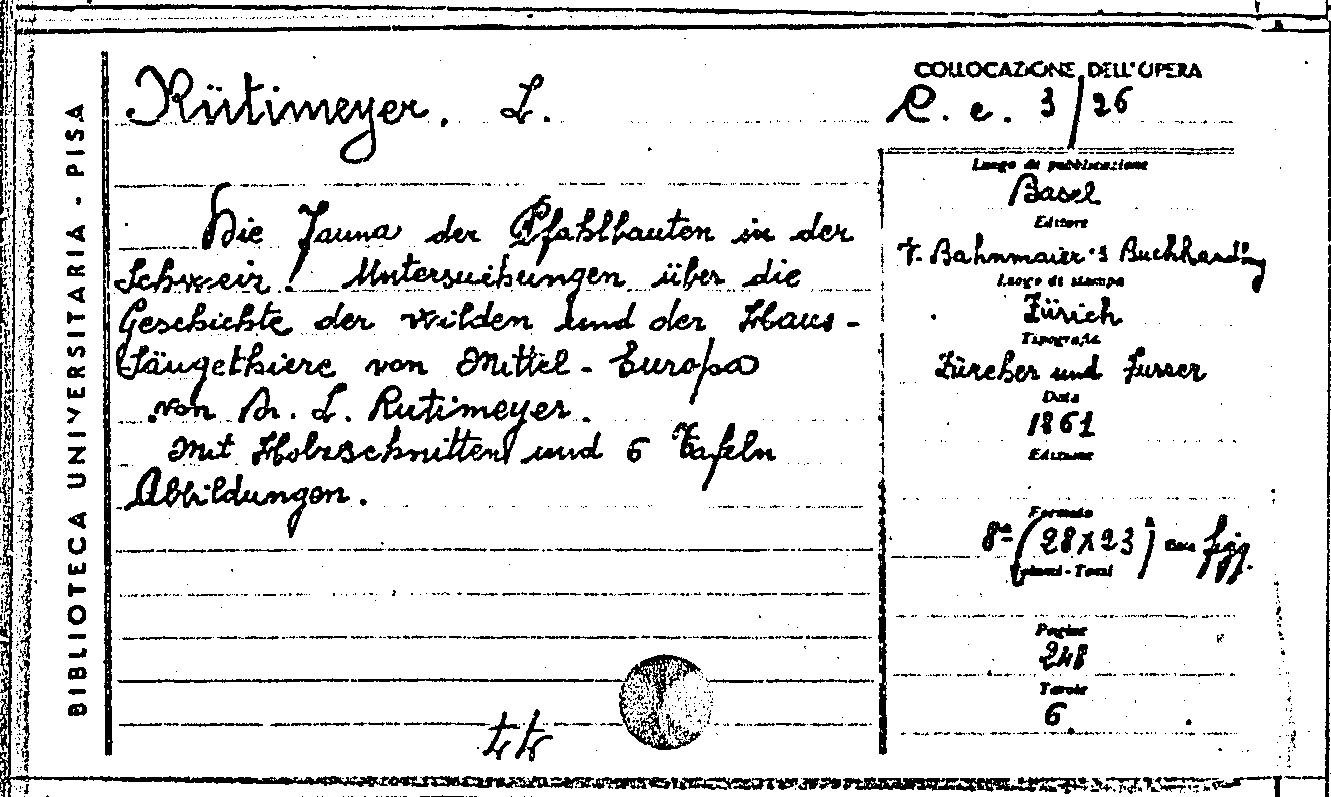 BIBLIOTECA UNIVERSITARIA - PISA
Rütimeyer, L.
Die Fauna der Pfahlbauten in der
Schweiz! Untersuchungen über die
Geschichte der wilden und der Haus-
Säugethiere von Mittel-Europa
von Dr. L. Rutimeyer.
Mit Holzschnitten und 6 Tafeln
Abbildungen.
COLLOCAZIONE DELL'OPERA
R. c. 3/26
Luogo di pubblicazione
Basel
Editore
F. Bahnmaier's Buchhand'ng
Luogo di stampa
Zürich
Tipografia
Zürcher und Furrer
Data
1861
Edizione
Formato
8º (28x23) con figg.
Volumi-Tomi
Pagine
248
Tavole
6